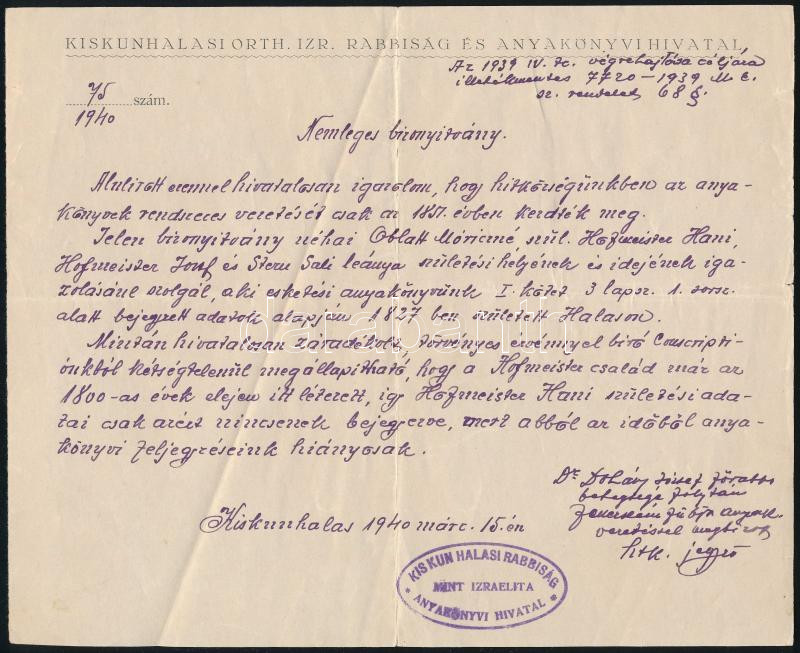 KISKUNHALASI ORTH. IZR. RABBISÁG ÉS ANYAKÖNYVI HIVATAL
Az 1939 IV. tc. végrehajtása céljára
illetékmentes 7720-1939 M. E.
sz. rendelet 68 §.
75 szám.
1940
Nemleges bizonyitvány.
Alulirott ezennel hivatalosan igazolom, hogy hitközségünkben az anya-
könyvek rendszeres vezetését csak az 1851. évben kezdték meg.
Jelen bizonyitvány néhai Oblatt Móriczné szül. Hofmeister Hani,
Hofmeister Jozsf és Stern Sali leánya születési helyének és idejének iga-
zolásául szolgál, aki esketési anyakönyvünk I. kötet 3 lapsz. 1. sorsz.
alatt bejegyzett adatok alapján 1827 ben született Halason.
Miután hivatalosan záradékolt, törvényes érvénnyel biró Conscripti-
ónkból kétségtelenül megállapitható, hogy a Hofmeister család már az
1800-as évek elején itt létezett, igy Hofmeister Hani születési ada-
tai csak azért nincsenek bejegyezve, mert abból az időből anya-
könyvi feljegyzéseink hiányosak.
Kiskunhalas 1940 márc. 15. én
Dr Dohány József főrabbi
betegsége folytán
anyak.
vezetéssel megbizott
htk. jegyző
KISKUNHALASI RABBISÁG
MINT IZRAELITA
* ANYAKÖNYVI HIVATAL *
darabanth